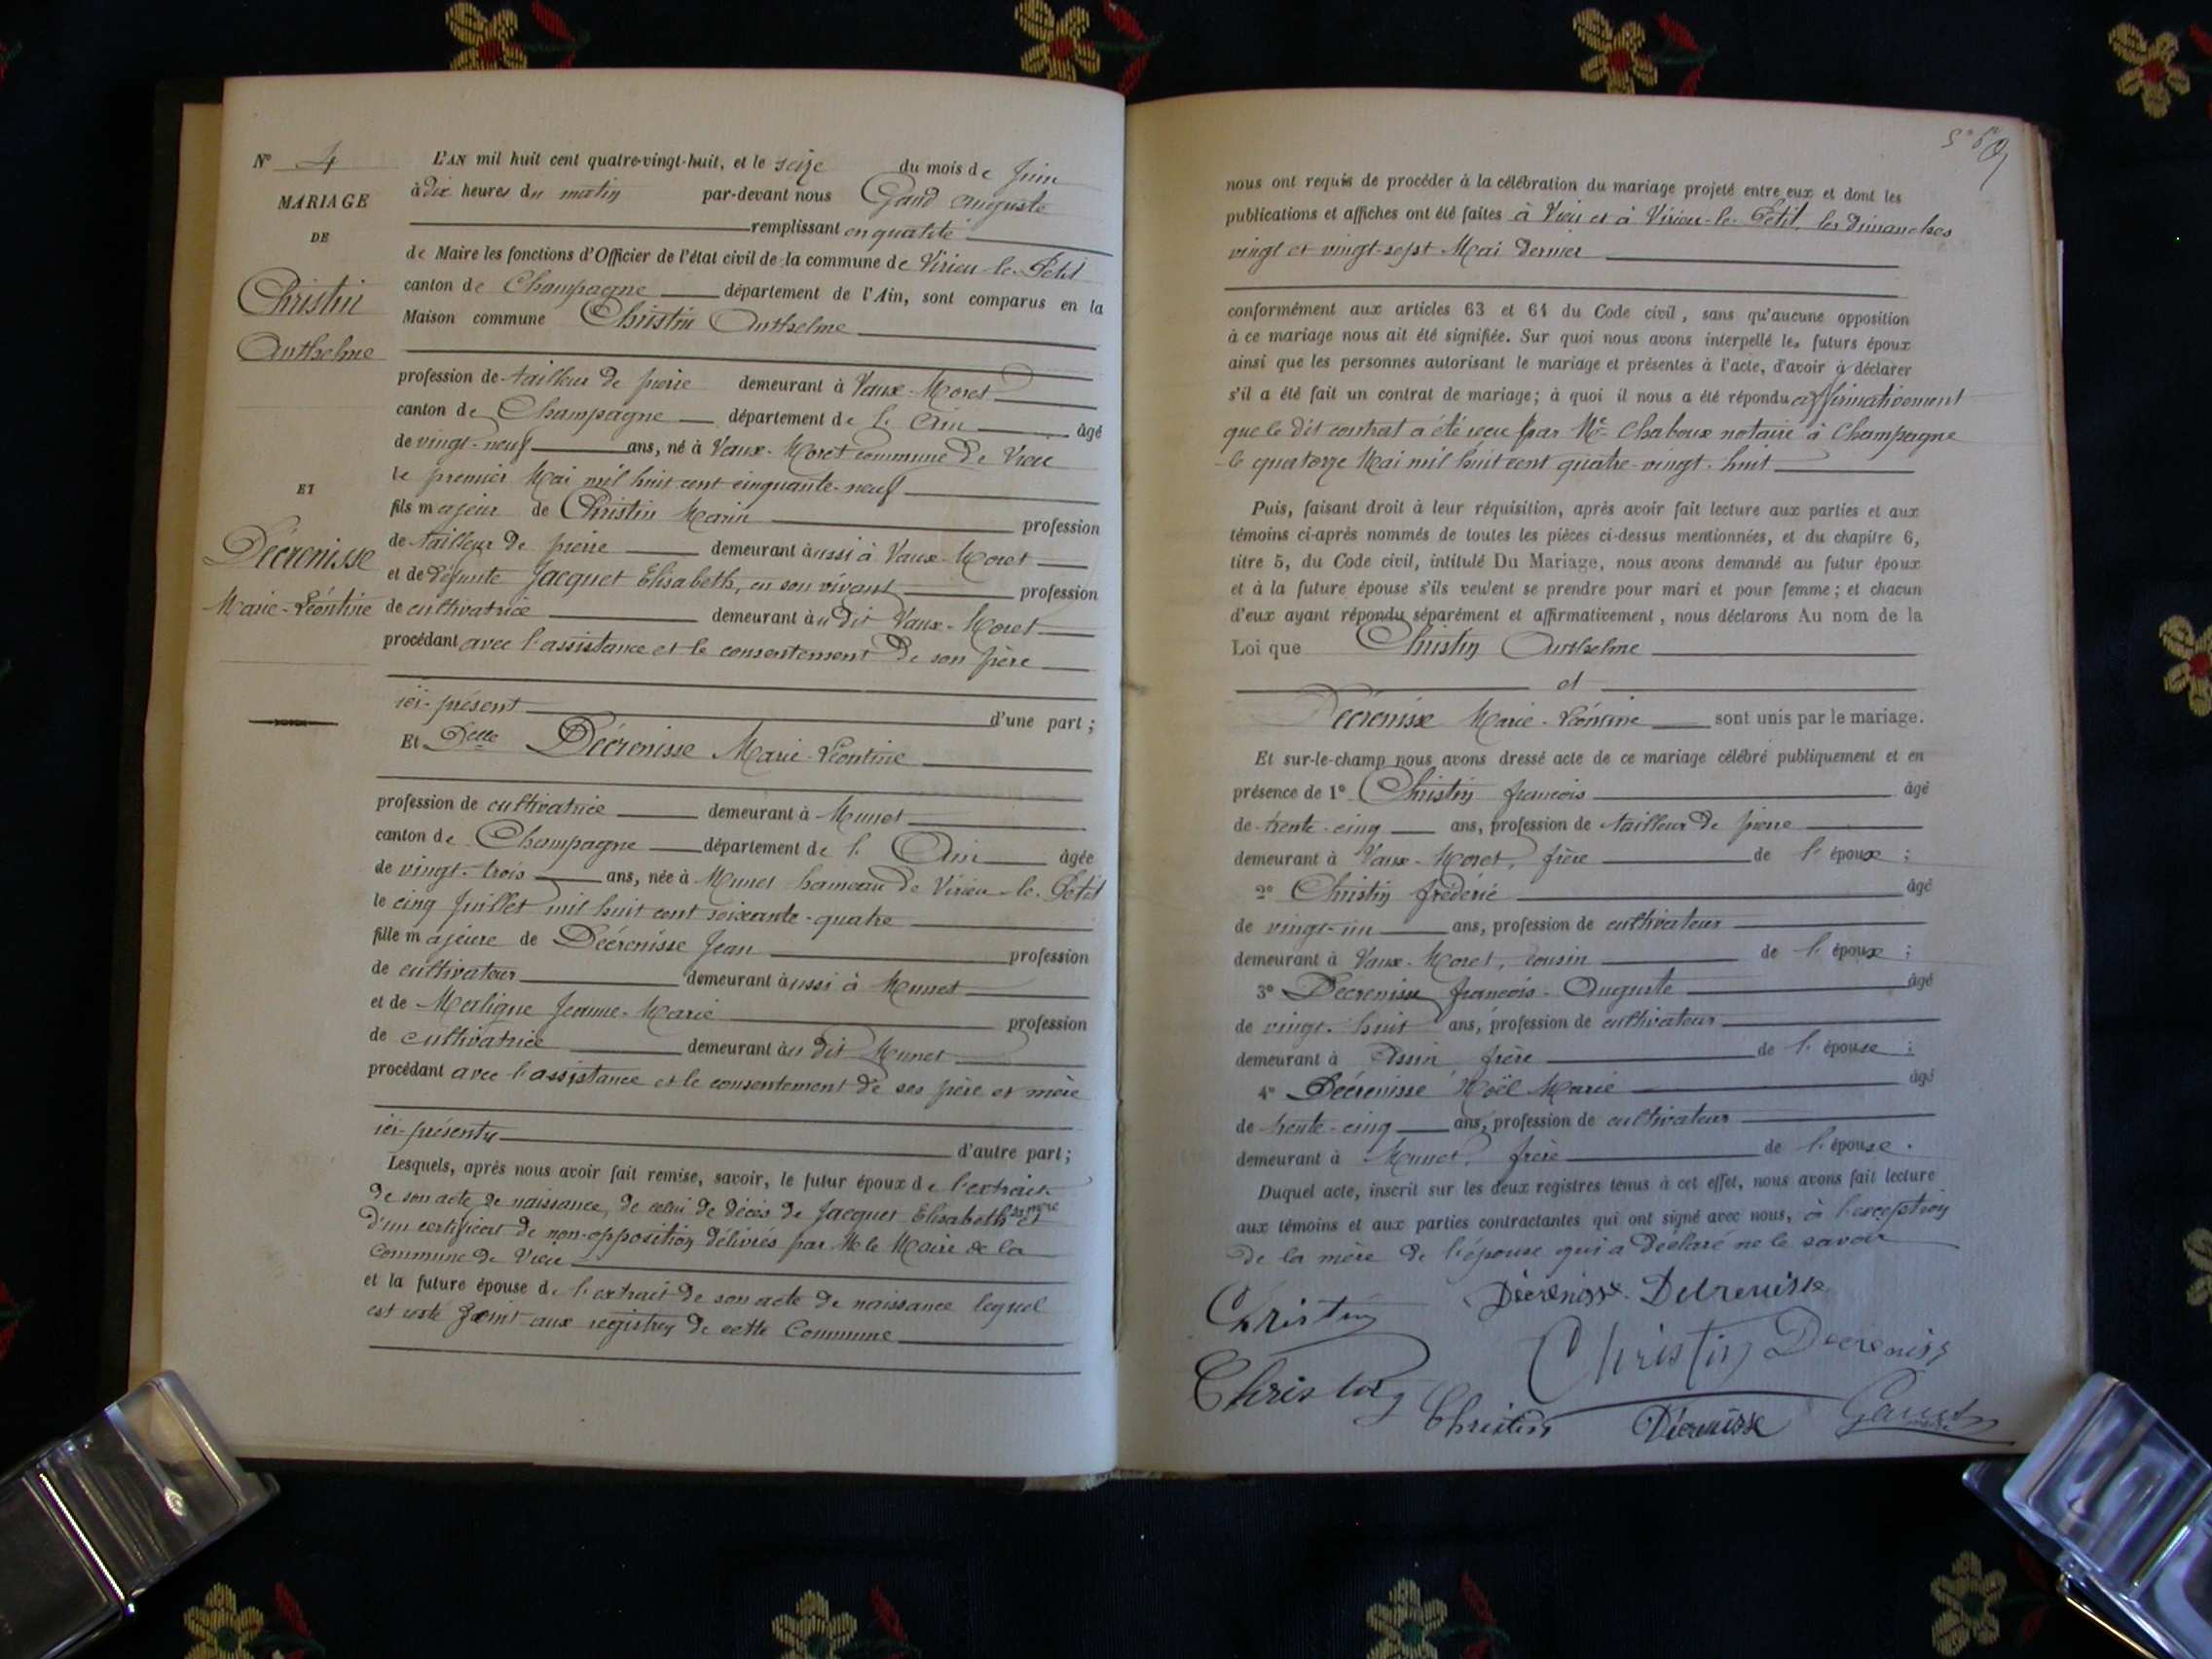 N° 4
MARIAGE
DE
Christin
Anthelme
ET
Décrenisse
Marie-Léontine
L'AN mil huit cent quatre-vingt-huit, et le seize du mois de Juin
à dix heures du matin par-devant nous Gand Auguste
remplissant en qualité
de Maire les fonctions d'Officier de l'état civil de la commune de Virieu-le-Petit
canton de Champagne département de l'Ain, sont comparus en la
Maison commune Christin Anthelme
profession de tailleur de pierre demeurant à Vaux-Moret
canton de Champagne département de L'Ain âgé
de vingt-neuf ans, né à Vaux-Moret commune de Vieu
le premier Mai mil huit cent cinquante-neuf
fils majeur de Christin Marin profession
de tailleur de pierre demeurant aussi à Vaux-Moret
et de défunte Jacquet Elisabeth, en son vivant profession
de cultivatrice demeurant au dit Vaux-Moret
procédant avec l'assistance et le consentement de son père
ici-présent d'une part;
Et Delle Décrenisse Marie-Léontine
profession de cultivatrice demeurant à Munet
canton de Champagne département de l'Ain âgée
de vingt-trois ans, née à Munet hameau de Virieu-le-Petit
le cinq Juillet mil huit cent soixante-quatre
fille majeure de Décrenisse Jean profession
de cultivateur demeurant aussi à Munet
et de Merligne Jeanne-Marie profession
de cultivatrice demeurant au dit Munet
procédant avec l'assistance et le consentement de ses père et mère
ici-présents d'autre part;
Lesquels, après nous avoir fait remise, savoir, le futur époux de l'extrait
de son acte de naissance, de celui de décès de Jacquet Elisabeth sa mère et
d'un certificat de non-opposition délivrés par Mr le Maire de la
Commune de Vieu
et la future épouse de l'extrait de son acte de naissance lequel
est resté joint aux registres de cette Commune
nous ont requis de procéder à la célébration du mariage projeté entre eux et dont les
publications et affiches ont été faites à Vieu et à Virieu-le-Petit, les dimanches
vingt et vingt-sept Mai dernier
conformément aux articles 63 et 64 du Code civil, sans qu'aucune opposition
à ce mariage nous ait été signifiée. Sur quoi nous avons interpellé les futurs époux
ainsi que les personnes autorisant le mariage et présentes à l'acte, d'avoir à déclarer
s'il a été fait un contrat de mariage; à quoi il nous a été répondu affirmativement
que le dit contrat a été reçu par Me Chaboux notaire à Champagne
le quatorze Mai mil huit cent quatre-vingt-huit
Puis, faisant droit à leur réquisition, après avoir fait lecture aux parties et aux
témoins ci-après nommés de toutes les pièces ci-dessus mentionnées, et du chapitre 6,
titre 5, du Code civil, intitulé Du Mariage, nous avons demandé au futur époux
et à la future épouse s'ils veulent se prendre pour mari et pour femme; et chacun
d'eux ayant répondu séparément et affirmativement, nous déclarons Au nom de la
Loi que Christin Anthelme
et
Décrenisse Marie-Léontine sont unis par le mariage.
Et sur-le-champ nous avons dressé acte de ce mariage célébré publiquement et en
présence de 1° Christin françois âgé
de trente-cinq ans, profession de tailleur de pierre
demeurant à Vaux-Moret, frère de l'époux;
2° Christin frédéric âgé
de vingt-un ans, profession de cultivateur
demeurant à Vaux-Moret, cousin de l'époux;
3° Décrenisse françois-Auguste âgé
de vingt-huit ans, profession de cultivateur
demeurant à Assin frère de l'épouse;
4° Décrenisse Noël Marie âgé
de trente-cinq ans, profession de cultivateur
demeurant à Munet, frère de l'épouse.
Duquel acte, inscrit sur les deux registres tenus à cet effet, nous avons fait lecture
aux témoins et aux parties contractantes qui ont signé avec nous, à l'exception
de la mère de l'épouse qui a déclaré ne le savoir
Christin Décrenisse Decrenisse
Christin Decreniss
Christin Christin Décrenisse Gand